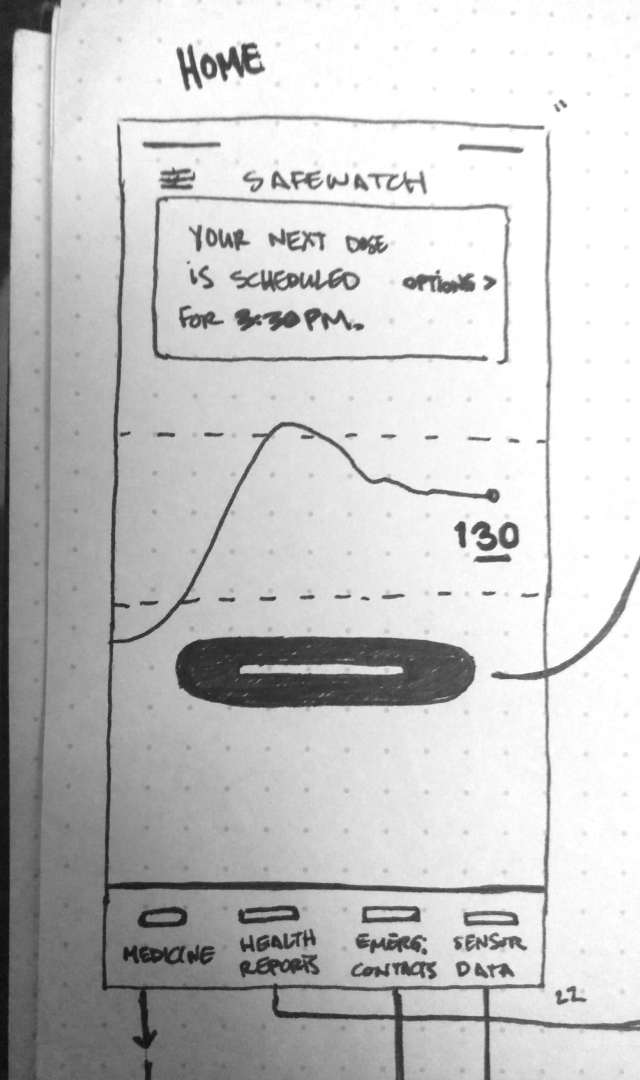 HOME
SAFEWATCH
YOUR NEXT DOSE
IS SCHEDULED
OPTIONS >
FOR 3:30 PM.
130
MEDICINE
HEALTH
REPORTS
EMERG.
CONTACTS
SENSOR
DATA